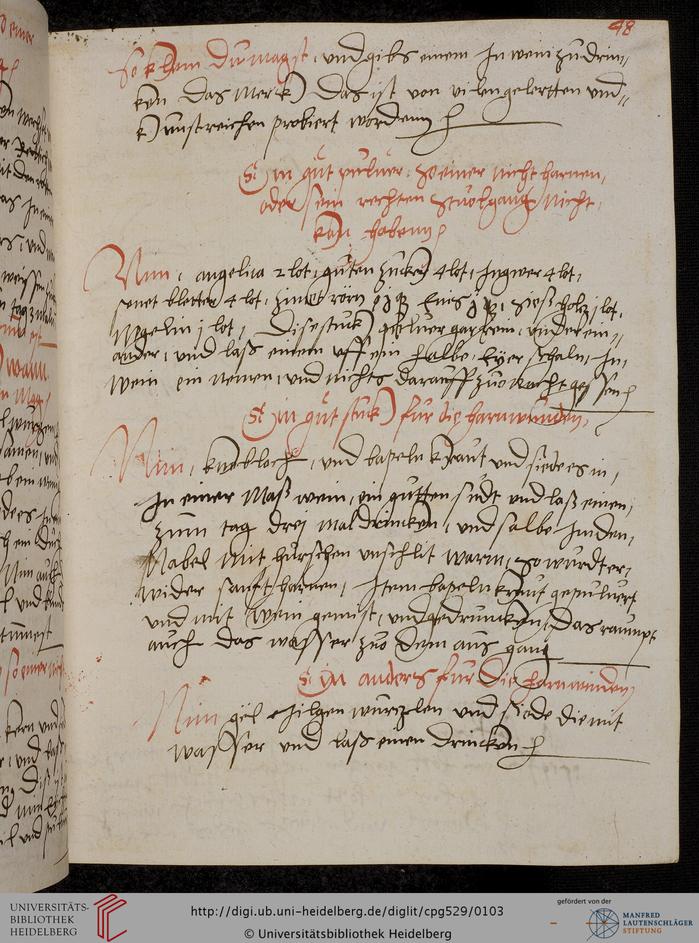 48
so k ham du magst, und gibs einem In wein zu drin,,
ken das merk das ist von vi len gelertten und,,
kunstreichen probiert wordenn
Ein gut puluer, so einer nicht harnen,
oder sein rechten stuolgang nicht,
kan habenn
Nim, angelica 2 lot, guten zucker 4 lot, Ingwer 4 lot,
senet bletter 4 lot, zimet rorn Enes sießholtz j lot,
Negelin j lot, Dise stuck gepulvert under ein,,
ander, und laß einem uff ein halbe Eyer schaln, In,
wein ein nemen, und nichts darauff zuo nacht gessen
Ein gut stuck für die harnwinden,
Nim, knobloch, und bapeln kraut und siede es in,
In einer Maß wein, ein gutten sudt und laß einen,
zum tag drei mal drincken, und salbe Im den,
Nabel mit hirschen unschlit warm, so wurdt er,
wider sanft harnen, Item bapeln kraut gepuluert
und mit wein gemist, und gedruncken, das raumpt
auch das wasser zuo dem aus gang
Ein anders für die harnwinden
Nim gel gilgen wurtzlen und siede die mit
wasser und laß einen drincken
UNIVERSITÄTS-
BIBLIOTHEK
HEIDELBERG
http://digi.ub.uni-heidelberg.de/diglit/cpg529/0103
© Universitätsbibliothek Heidelberg
gefördert von der
MANFRED
LAUTENSCHLÄGER
STIFTUNG